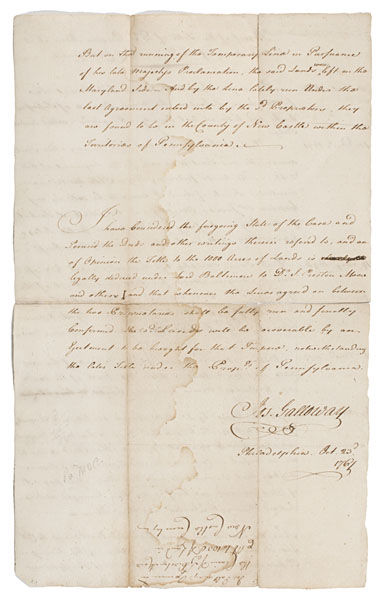 But on the running of the Temporary Line in Pursuance
of his late Majestys Proclamation, the said Lands were left on the
Maryland Side. And by the line lately run Under the
last Agreement entred into by the sd. Proprietors, they
are found to lie in the County of New Castle within the
Territories of Pennsylvania.
I have Considered the foregoing State of the Case and
Perused the Deeds and other writings therein refered to, and am
of Opinion the Title to the 1000 Acres of Lands is
legally derived under Lord Baltimore to Dr.
and others and that whenever the Lines agreed on between
the two Provinces shall be fully run and finally
Confirmed the said Lands will be recoverable by an
Ejectment to be brought for that Purpose, notwithstanding
the later Title under the Propr. of Pennsylvania.
Jos. Galloway
Philadelphia Oct. 23d
176
New Castle County